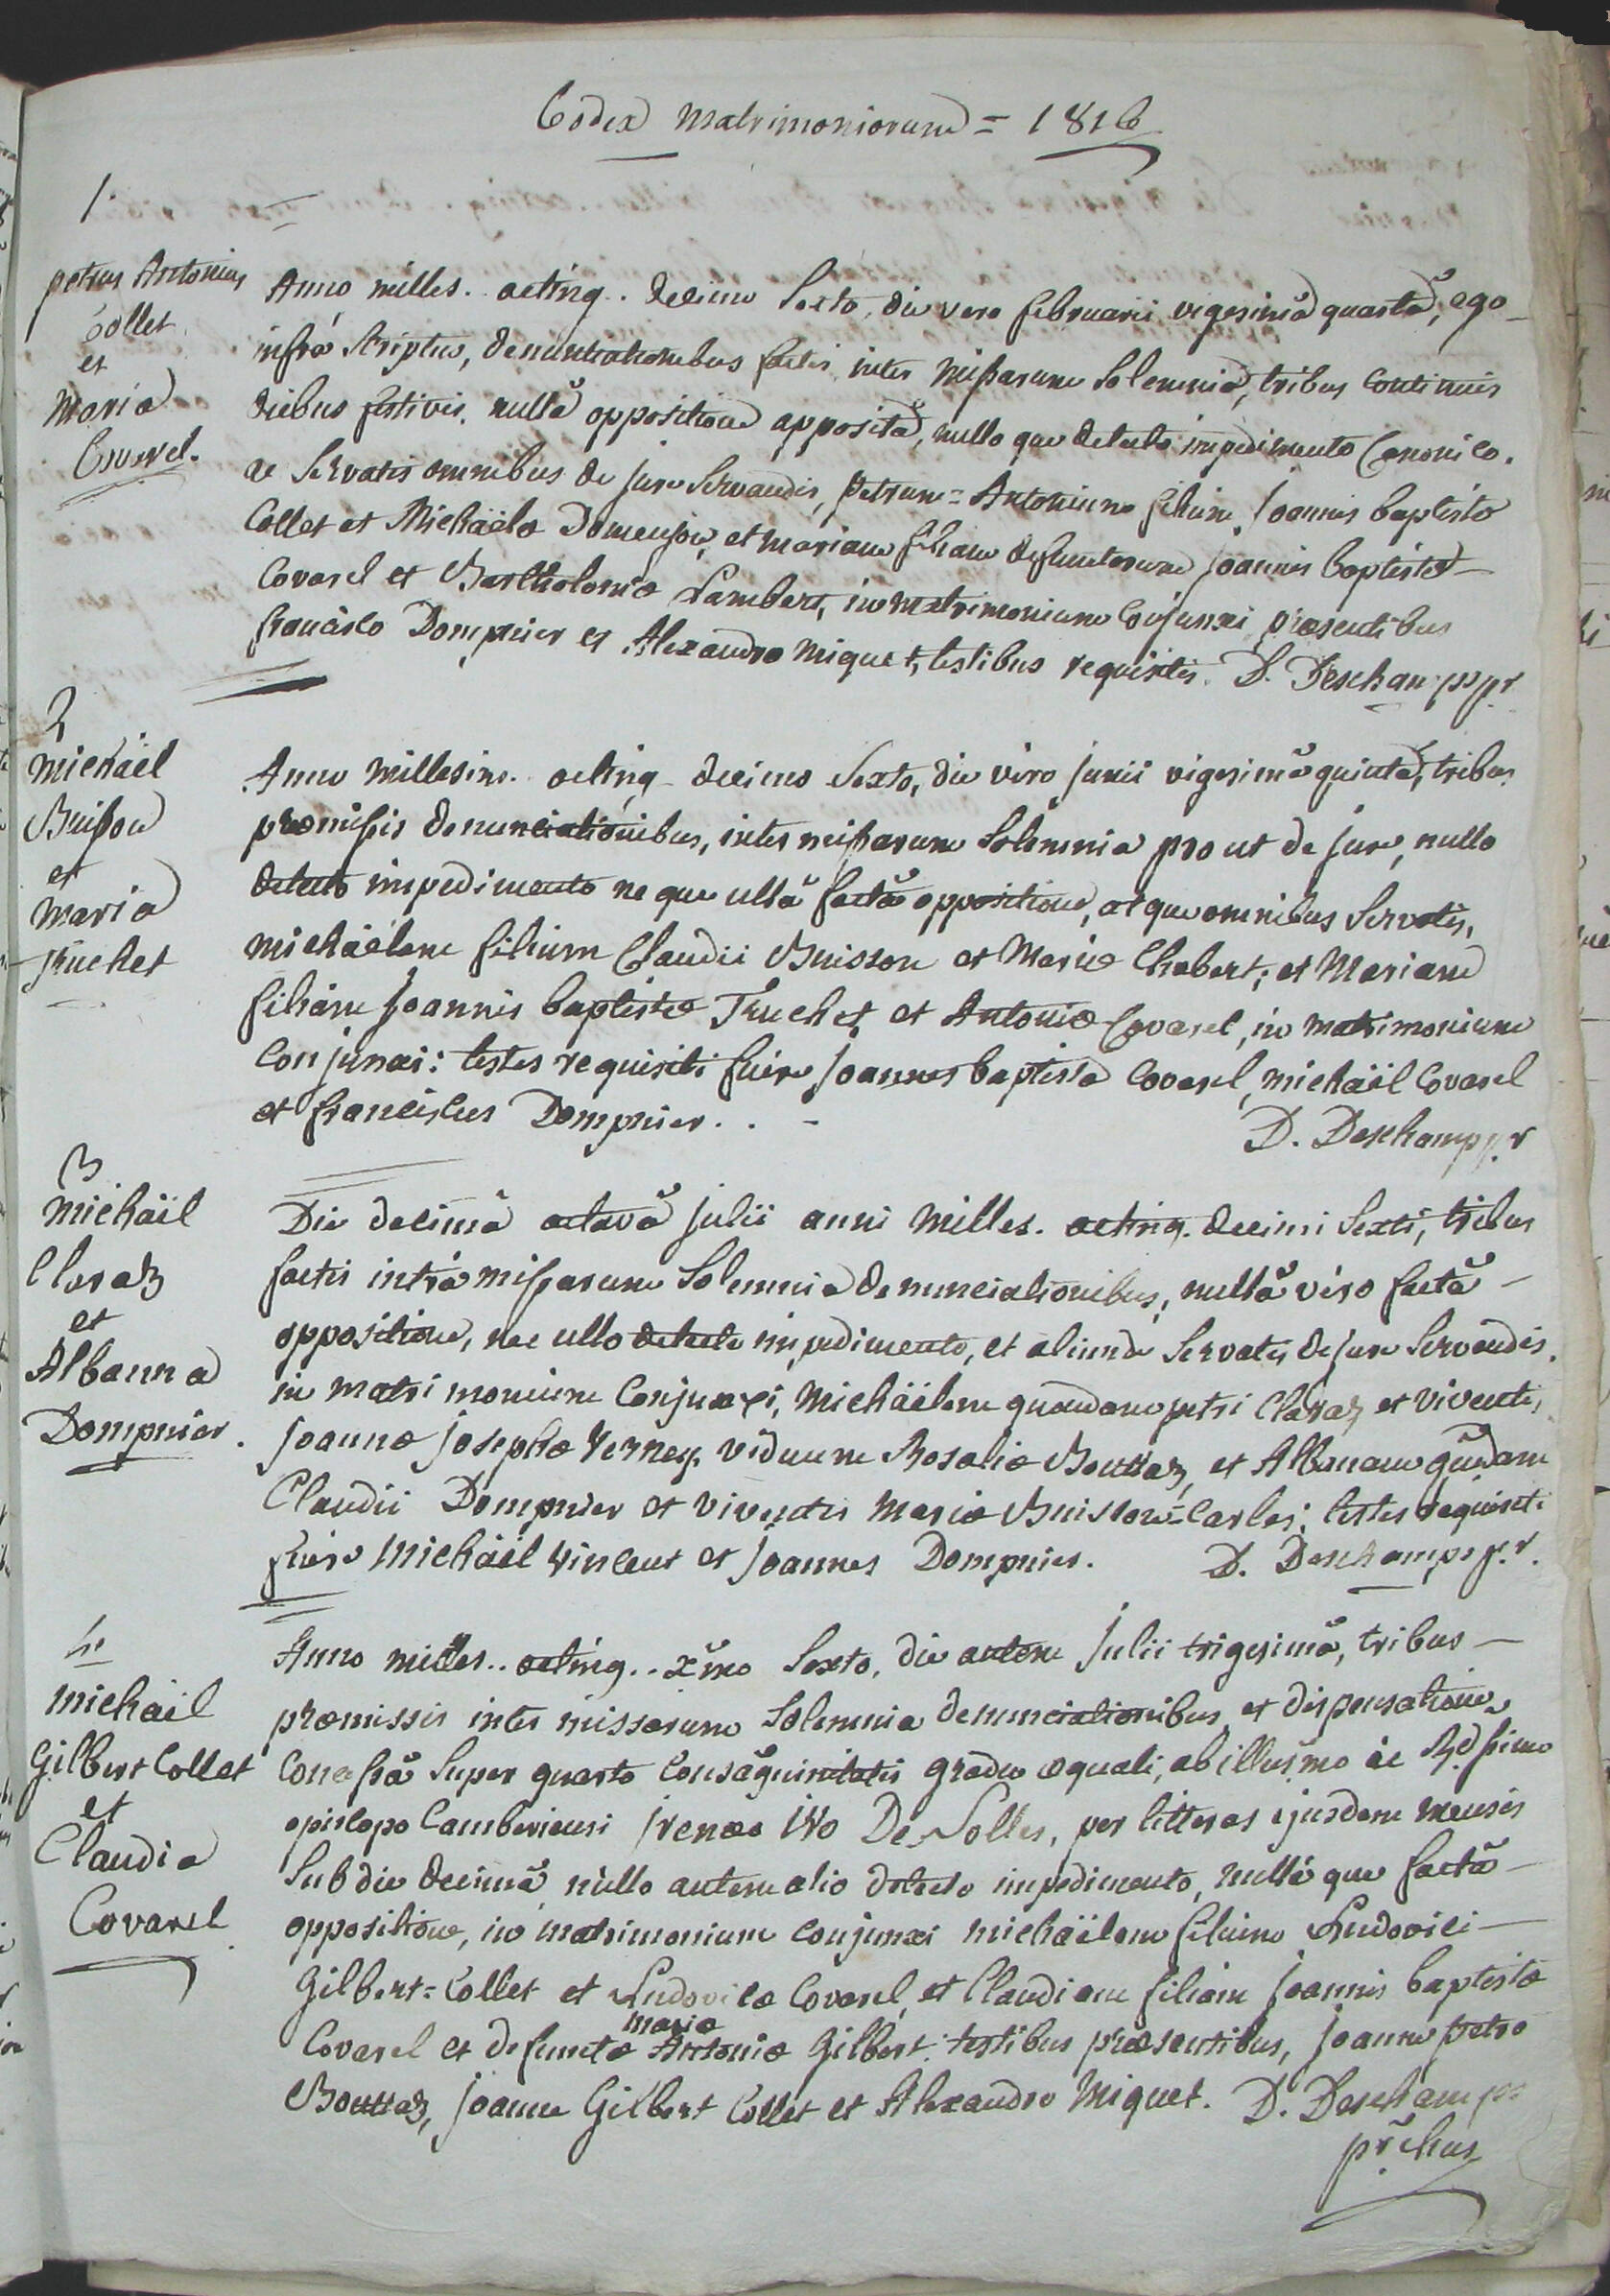 Codex Matrimoniorum = 1816
1.
petrus Antonius
Collet
et
Maria
Covarel.
Anno milles. octing. decimo Sexto, die vero februarii vigesimâ quartâ, ego
infrà Scriptus, denuntiationibus factis inter missarum Solemnia, tribus continuis
diebus festivis, nullâ oppositione appositâ, nullo que detecto impedimento Canonico.
ac Servatis omnibus de jure Servandis, petrum = Antonium filium Joannis baptistæ
Collet et Michaëlæ et mariam filiam defunctorum joannis baptistæ
Covarel et Bartholomeæ Lambert, in matrimonium Conjunxi præsentibus
francisco Dompnier et Alexandro Miquet, testibus requisitis. D. Deschamps pr.
2
Michaël
Buisson
et
Maria
Truchet
Anno Millesim. octing. decimo Sexto, die vero junii vigesimâ quintâ, tribus
præmissis denunciationibus, inter missarum Solemnia pro ut de jure, nullo
detecto impedimento ne que ullâ factâ oppositione, at que omnibus Servatis,
michaëlem filium Claudii Buisson et Mariæ Chabert; et Mariam
filiam Joannis baptistæ Truchet et Antoniæ Covarel, in matrimonium
Conjunxi: testes requisiti fuêre Joannes baptista Covarel, michaël Covarel
et franciscus Dompnier. . -
D. Deschamps p.r
3
Michaël
Claraz
et
Albanna
Dompnier.
Die decimâ octavâ julii anni milles. octing. decimi Sexti, tribus
factis intrà missarum Solemnia denunciationibus, nullâ vero factâ
oppositione, nec ullo detecto impedimento, et aliunde Servatis de jure Servandis.
in matri monium Conjunxi, Michaëlem quondam petri Claraz et viventis
Joannæ josephæ Verney, viduum Rosaliæ Bouttaz, et Albanam qūdam
Claudii Dompnier et viventis Mariæ Buisson=Carles; testes requisiti
fuêre Michaël Vincent et Joannes Dompnier. D. Deschamps p.r.
4
Michaël
Gilbert Collet
et
Claudia
Covarel
Anno milles.. octing.. x̃mo Sexto, die autem julii trigesimâ, tribus
præmissis inter missarum Solemnia denunciationibus, et dispensatione
Concessâ Super quarto Consāguinitatis gradu æquali, ab illusmo ac Rdssimo
episcopo Camberiensi irenæo ivo De Solles, per litteras ejusdem mensis
Sub die decimâ nullo autem alio detecto impedimento, nullâ que factâ
oppositione, in matrimonium conjunxi michaëlem filium Ludovici
Gilbert=Collet et Ludovicæ Covarel, et Claudiam filiam Joannis baptistæ
mariæ
Covarel et defunctæ Antoniæ Gilbert. testibus præsentibus, Joanne petro
Bouttaz, joanne Gilbert Collet et Alexandro Miquet. D. Deschamps
pr̃chus